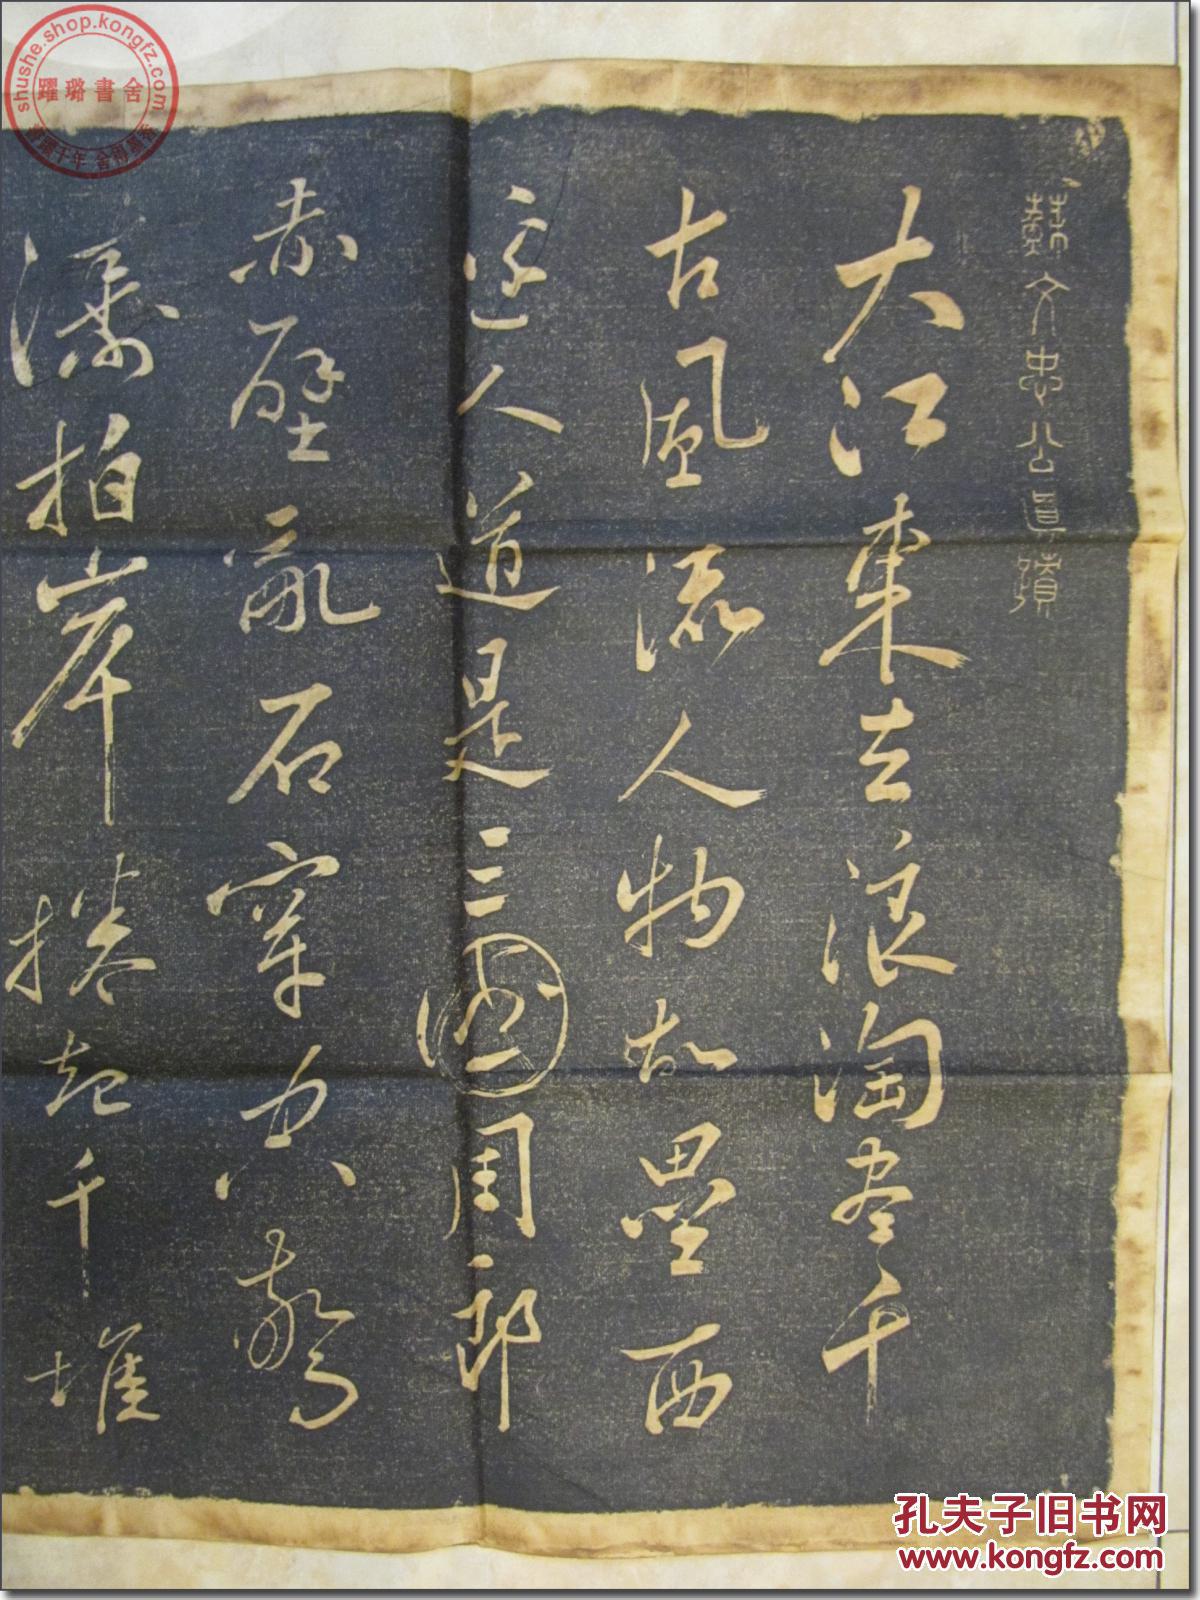 蘇文忠公眞蹟
大江東去浪淘盡千
古風流人物故壘西
邊人道是三國周郎
赤壁亂石穿空驚
濤拍岸捲起千堆
shushe.shop.kongfz.com
躍璐書舍
孔夫子旧书网
www.kongfz.com